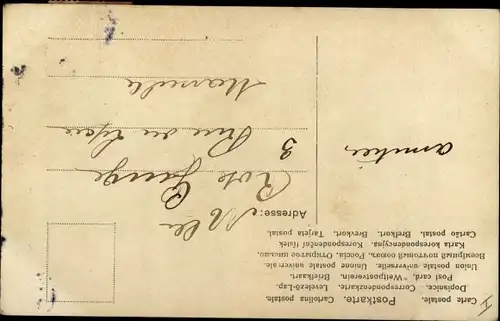 Carte postale. Postkarte. Cartolina postale.
Dopisnice. Correspondenzkarte. Levelező-Lap.
Post card. "Weltpostverein". Briefkaart.
Union postale universelle. Unione postale universale.
Всемірный почтовый союз. Россія. Открытое письмо.
Karta korespondencyjna. Korespondenční lístek.
Cartão postal. Brefkort. Brevkort. Tarjeta postal.
Adresse: Melle
Rose
3 Rue du Lycée
Marseille
amitiés